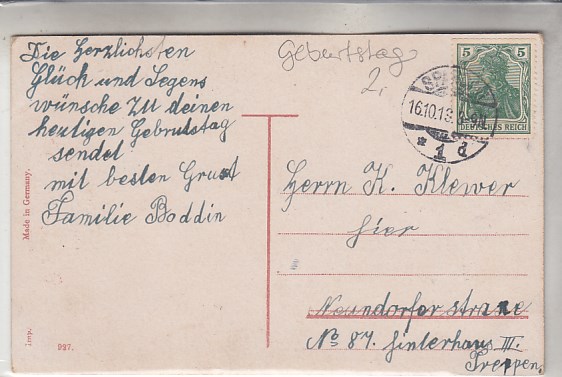 Die Herzlichsten
Glück und Segens
wünsche zu deinen
heutigen Gebrutstag
sendet
mit besten Grust
Familie Boddin
Geburtstag
2,
5 5
DEUTSCHES REICH
16.10.13.
* 1 d
Herrn K. Klewer
hier
Neundorfer straze
No 87. hinterhaus III.
Treppen.
Made in Germany.
Imp. 997.